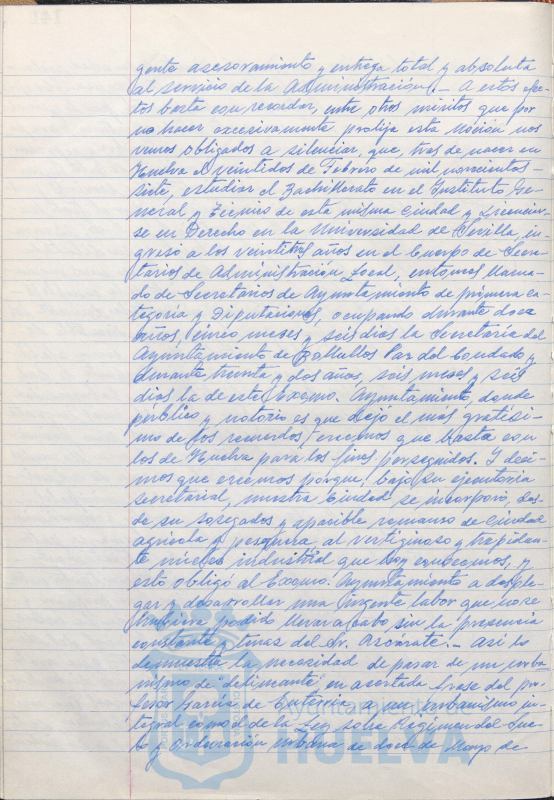 gente asesoramiento y entrega total y absoluta
al servicio de la Administración.- A estos efec-
tos basta con recordar, entre otros méritos que por
no hacer excesivamente prolija esta Moción nos
vemos obligados a silenciar, que, tras de nacer en
Huelva el veintidos de Febrero de mil novecientos
siete, estudiar el Bachillerato en el Instituto Ge-
neral y Técnico de esta misma Ciudad y Licenciar-
se en Derecho en la Universidad de Sevilla, in-
gresó a los veintitres años en el Cuerpo de Secre-
tarios de Administración Local, entonces llama-
do de Secretarios de Ayuntamiento de primera ca-
tegoría y Diputaciones, ocupando durante doce
años, cinco meses y seis dias la Secretaría del
Ayuntamiento de Bollullos Par del Condado y
durante treinta y dos años, seis meses y seis
dias la de este Excmo. Ayuntamiento, donde
público y notorio es que dejó el más gratísi-
mo de los recuerdos, creemos que basta con
los de Huelva para los fines perseguidos. Y deci-
mos que creemos porque, bajo su ejecutoria
secretarial, nuestra Ciudad se incorporó des-
de su sosegado y apacible remanso de ciudad
agrícola y pesquera, al vertiginoso y trepidan-
te núcleo industrial que hoy conocemos, y
esto obligó al Excmo. Ayuntamiento a desple-
gar y desarrollar una ingente labor que no se
hubiera podido llevar a cabo sin la presencia
constante y tenaz del Sr. Azcárate.- Así lo
demuestra la necesidad de pasar de un urba-
nismo de "delineante" en acertada frase del pro-
fesor García de Enterría a un urbanismo in-
tegral como el de la Ley sobre Régimen del Sue-
lo y Ordenación Urbana de doce de Mayo de
Ayuntamiento de
HUELVA